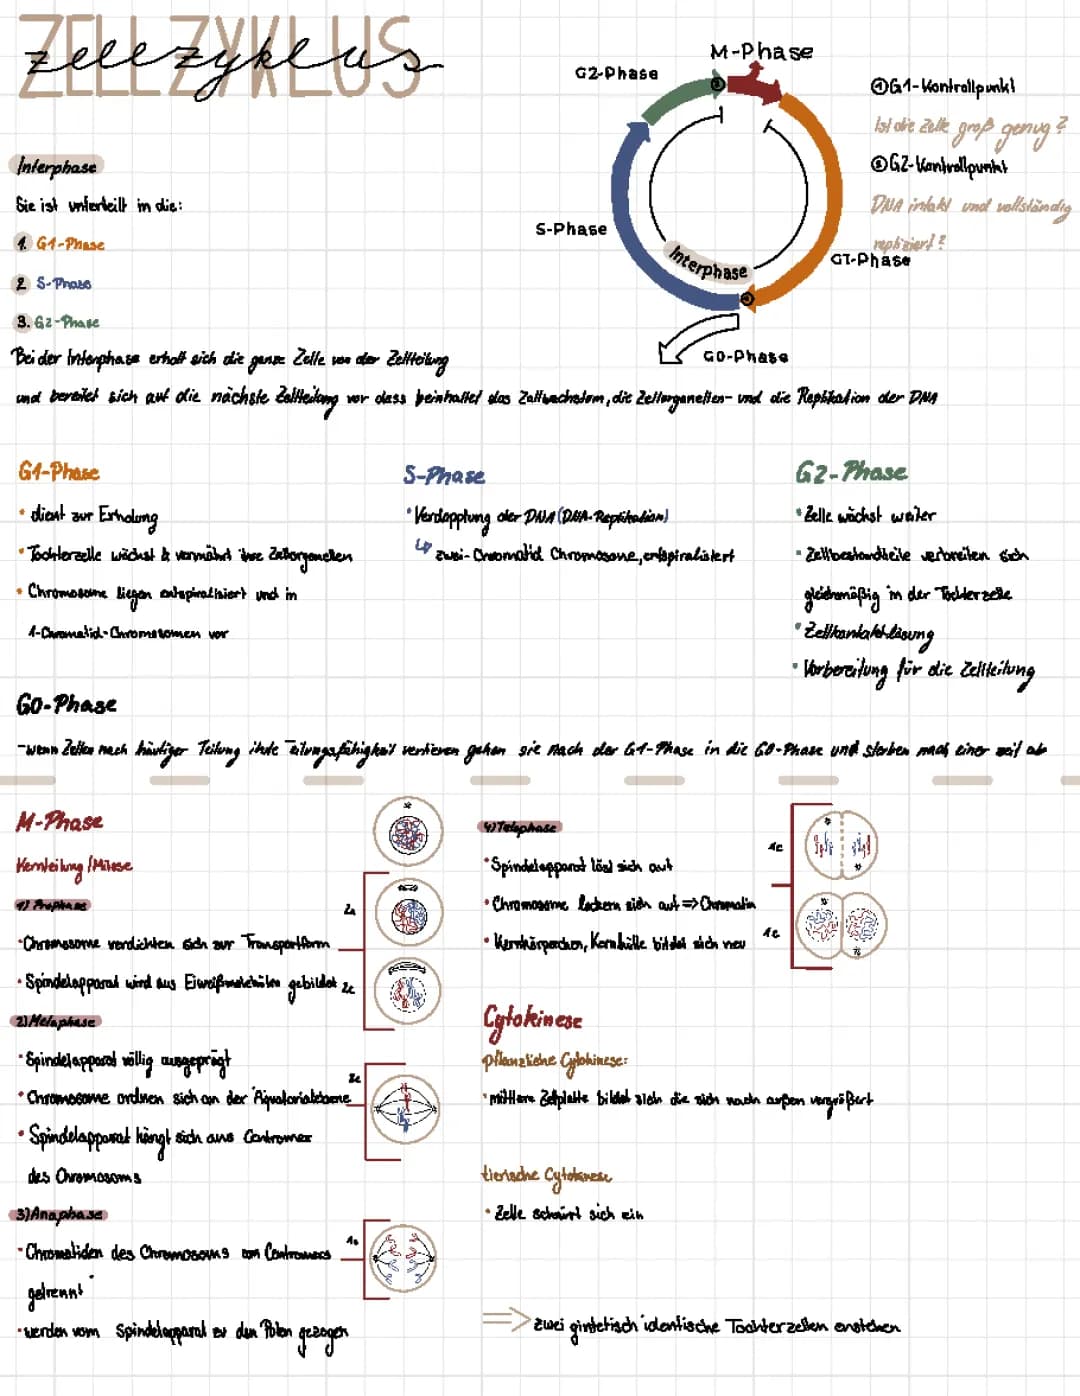 ZELLZYKLUS
zellzyklus
M-Phase
G2-Phase
①G1-Kontrollpunkt
Ist die Zelle groß genug?
②G2-Kontrollpunkt
DNA intakt und vollständig
repliziert?
S-Phase
G1-Phase
Interphase
G0-Phase
Interphase
Sie ist unterteilt in die:
1. G1-Phase
2 S-Phase
3. G2-Phase
Bei der Interphase erholt sich die ganze Zelle von der Zellteilung
und bereitet sich auf die nächste Zellteilung vor dass beinhaltet das Zellwachstum, die Zellorganellen- und die Replikation der DNA
G1-Phase
• dient zur Erholung
• Tochterzelle wächst & vermährt ihre Zellorganellen
• Chromosome liegen entspiralisiert und in
1-Chromatid-Chromosomen vor
S-Phase
• Verdopplung der DNA (DNA-Replikation)
↳ zwei-Chromatid Chromosome, entspiralisiert
G2-Phase
• Zelle wächst weiter
• Zellbestandteile verbreiten sich
gleichmäßig in der Tochterzelle
• Zellkontaktlösung
• Vorbereitung für die Zellteilung
G0-Phase
- wenn Zellen nach häufiger Teilung ihre Teilungsfähigkeit verlieren gehen sie nach der G1-Phase in die G0-Phase und sterben nach einer zeit ab
M-Phase
Kernteilung/Mitose
1) Prophase
• Chromosome verdichten sich zur Transportform
• Spindelapparat wird aus Eiweißmolekülen gebildet
2c
2) Metaphase
• Spindelapparat völlig ausgeprägt
• Chromosome ordnen sich an der Äquatorialebene
2c
• Spindelapparat hängt sich ans Centromer
des Chromosoms
3) Anaphase
• Chromatiden des Chromosoms am Centromers
getrennt
• werden vom Spindelapparat zu den Polen gezogen
4) Telophase
• Spindelapparat löst sich auf
• Chromosome lockern sich auf ⇒ Chromatin
• Kernkörperchen, Kernhülle bildet sich neu
1c
1c
Cytokinese
pflanzliche Cytokinese:
• mittlere Zellplatte bildet sich die sich nach außen vergrößert
tierische Cytokinese
• Zelle schnürt sich ein
⇒ zwei gintetisch identische Tochterzellen enstehen